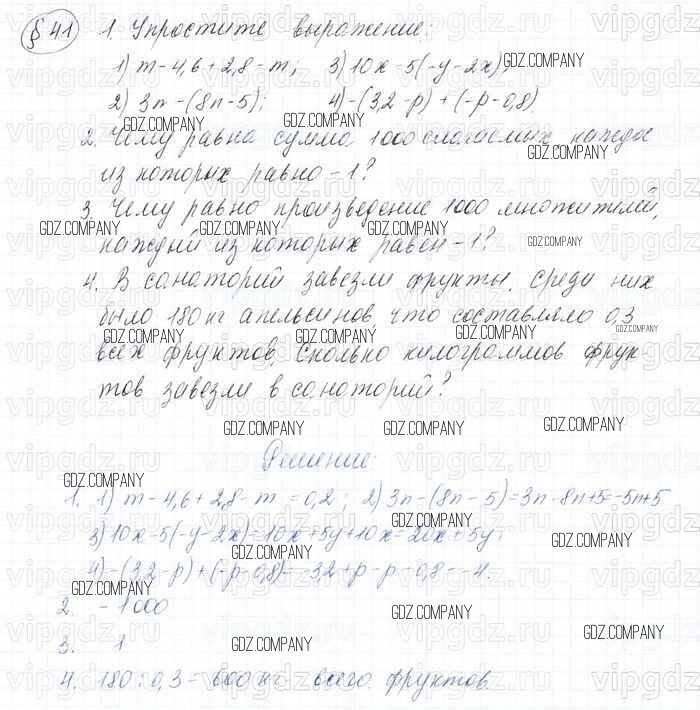 § 41 1. Упростите выражение:
1) m-4,6+2,8-m; 3) 10x-5(-y-2x);
2) 3n-(8n-5); 4) -(3,2-p)+(-p-0,8)
2. Чему равна сумма 1000 слагаемых, каждое
из которых равно -1?
3. Чему равно произведение 1000 множителей,
каждый из которых равен -1?
4. В санаторий завезли фрукты. Среди них
было 180 кг апельсинов, что составляло 0,3
всех фруктов. Сколько килограммов фрук-
тов завезли в санаторий?
Решение:
1. 1) m-4,6+2,8-m = 0,2; 2) 3n-(8n-5)=3n-8n+5=-5n+5
3) 10x-5(-y-2x)=10x+5y+10x=20x+5y;
4) -(3,2-p)+(-p-0,8)=-3,2+p-p-0,8=-4.
2. -1000
3. 1
4. 180:0,3=600 кг - всего фруктов.
GDZ.COMPANY
vipgdz.ru